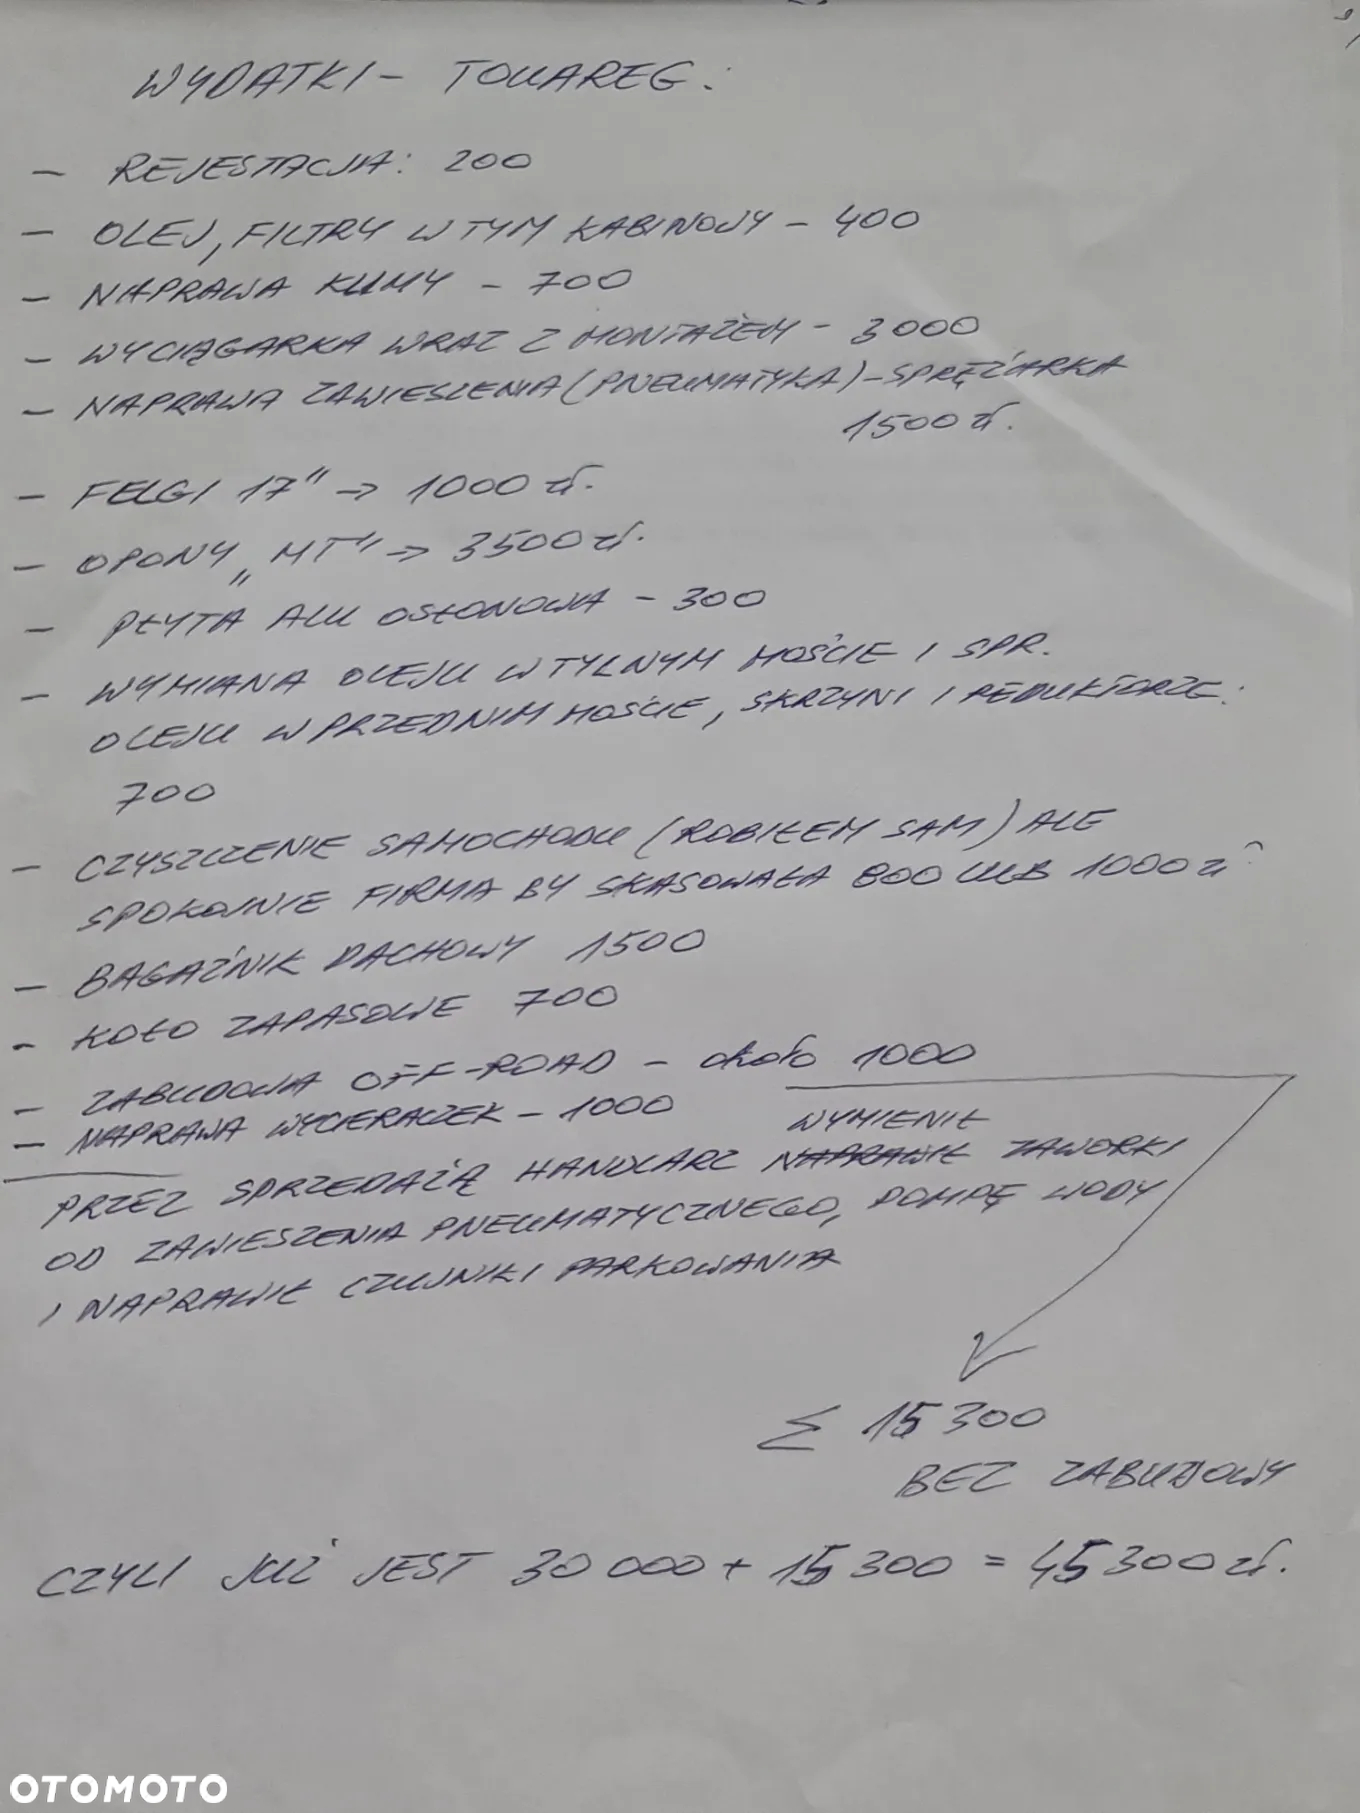 WYDATKI - TOUAREG:
- REJESTACJA: 200
- OLEJ, FILTRY W TYM KABINOWY - 400
- NAPRAWA KLIMY - 700
- WYCIĄGARKA WRAZ Z MONTAŻEM - 3000
- NAPRAWA ZAWIESZENIA (PNEUMATYKA) - SPRĘŻARKA
1500 zł.
- FELGI 17" → 1000 zł.
- OPONY „MT" → 3500 zł.
- PŁYTA ALU OSŁONOWA - 300
- WYMIANA OLEJU W TYLNYM MOŚCIE I SPR.
OLEJU W PRZEDNIM MOŚCIE, SKRZYNI I REDUKTORZE:
700
- CZYSZCZENIE SAMOCHODU (ROBIŁEM SAM) ALE
SPOKOJNIE FIRMA BY SKASOWAŁA 800 LUB 1000 zł
- BAGAŻNIK DACHOWY 1500
- KOŁO ZAPASOWE 700
- ZABUDOWA OFF-ROAD - około 1000
- NAPRAWA WYCIERACZEK - 1000
WYMIENIŁ
PRZEZ SPRZEDAŻĄ HANDLARZ NAPRAWIŁ ZAWORKI
OD ZAWIESZENIA PNEUMATYCZNEGO, POMPĘ WODY
I NAPRAWIŁ CZUJNIKI PARKOWANIA
Σ 15 300
BEZ ZABUDOWY
CZYLI JUŻ JEST 30 000 + 15 300 = 45 300 zł.
OTOMOTO